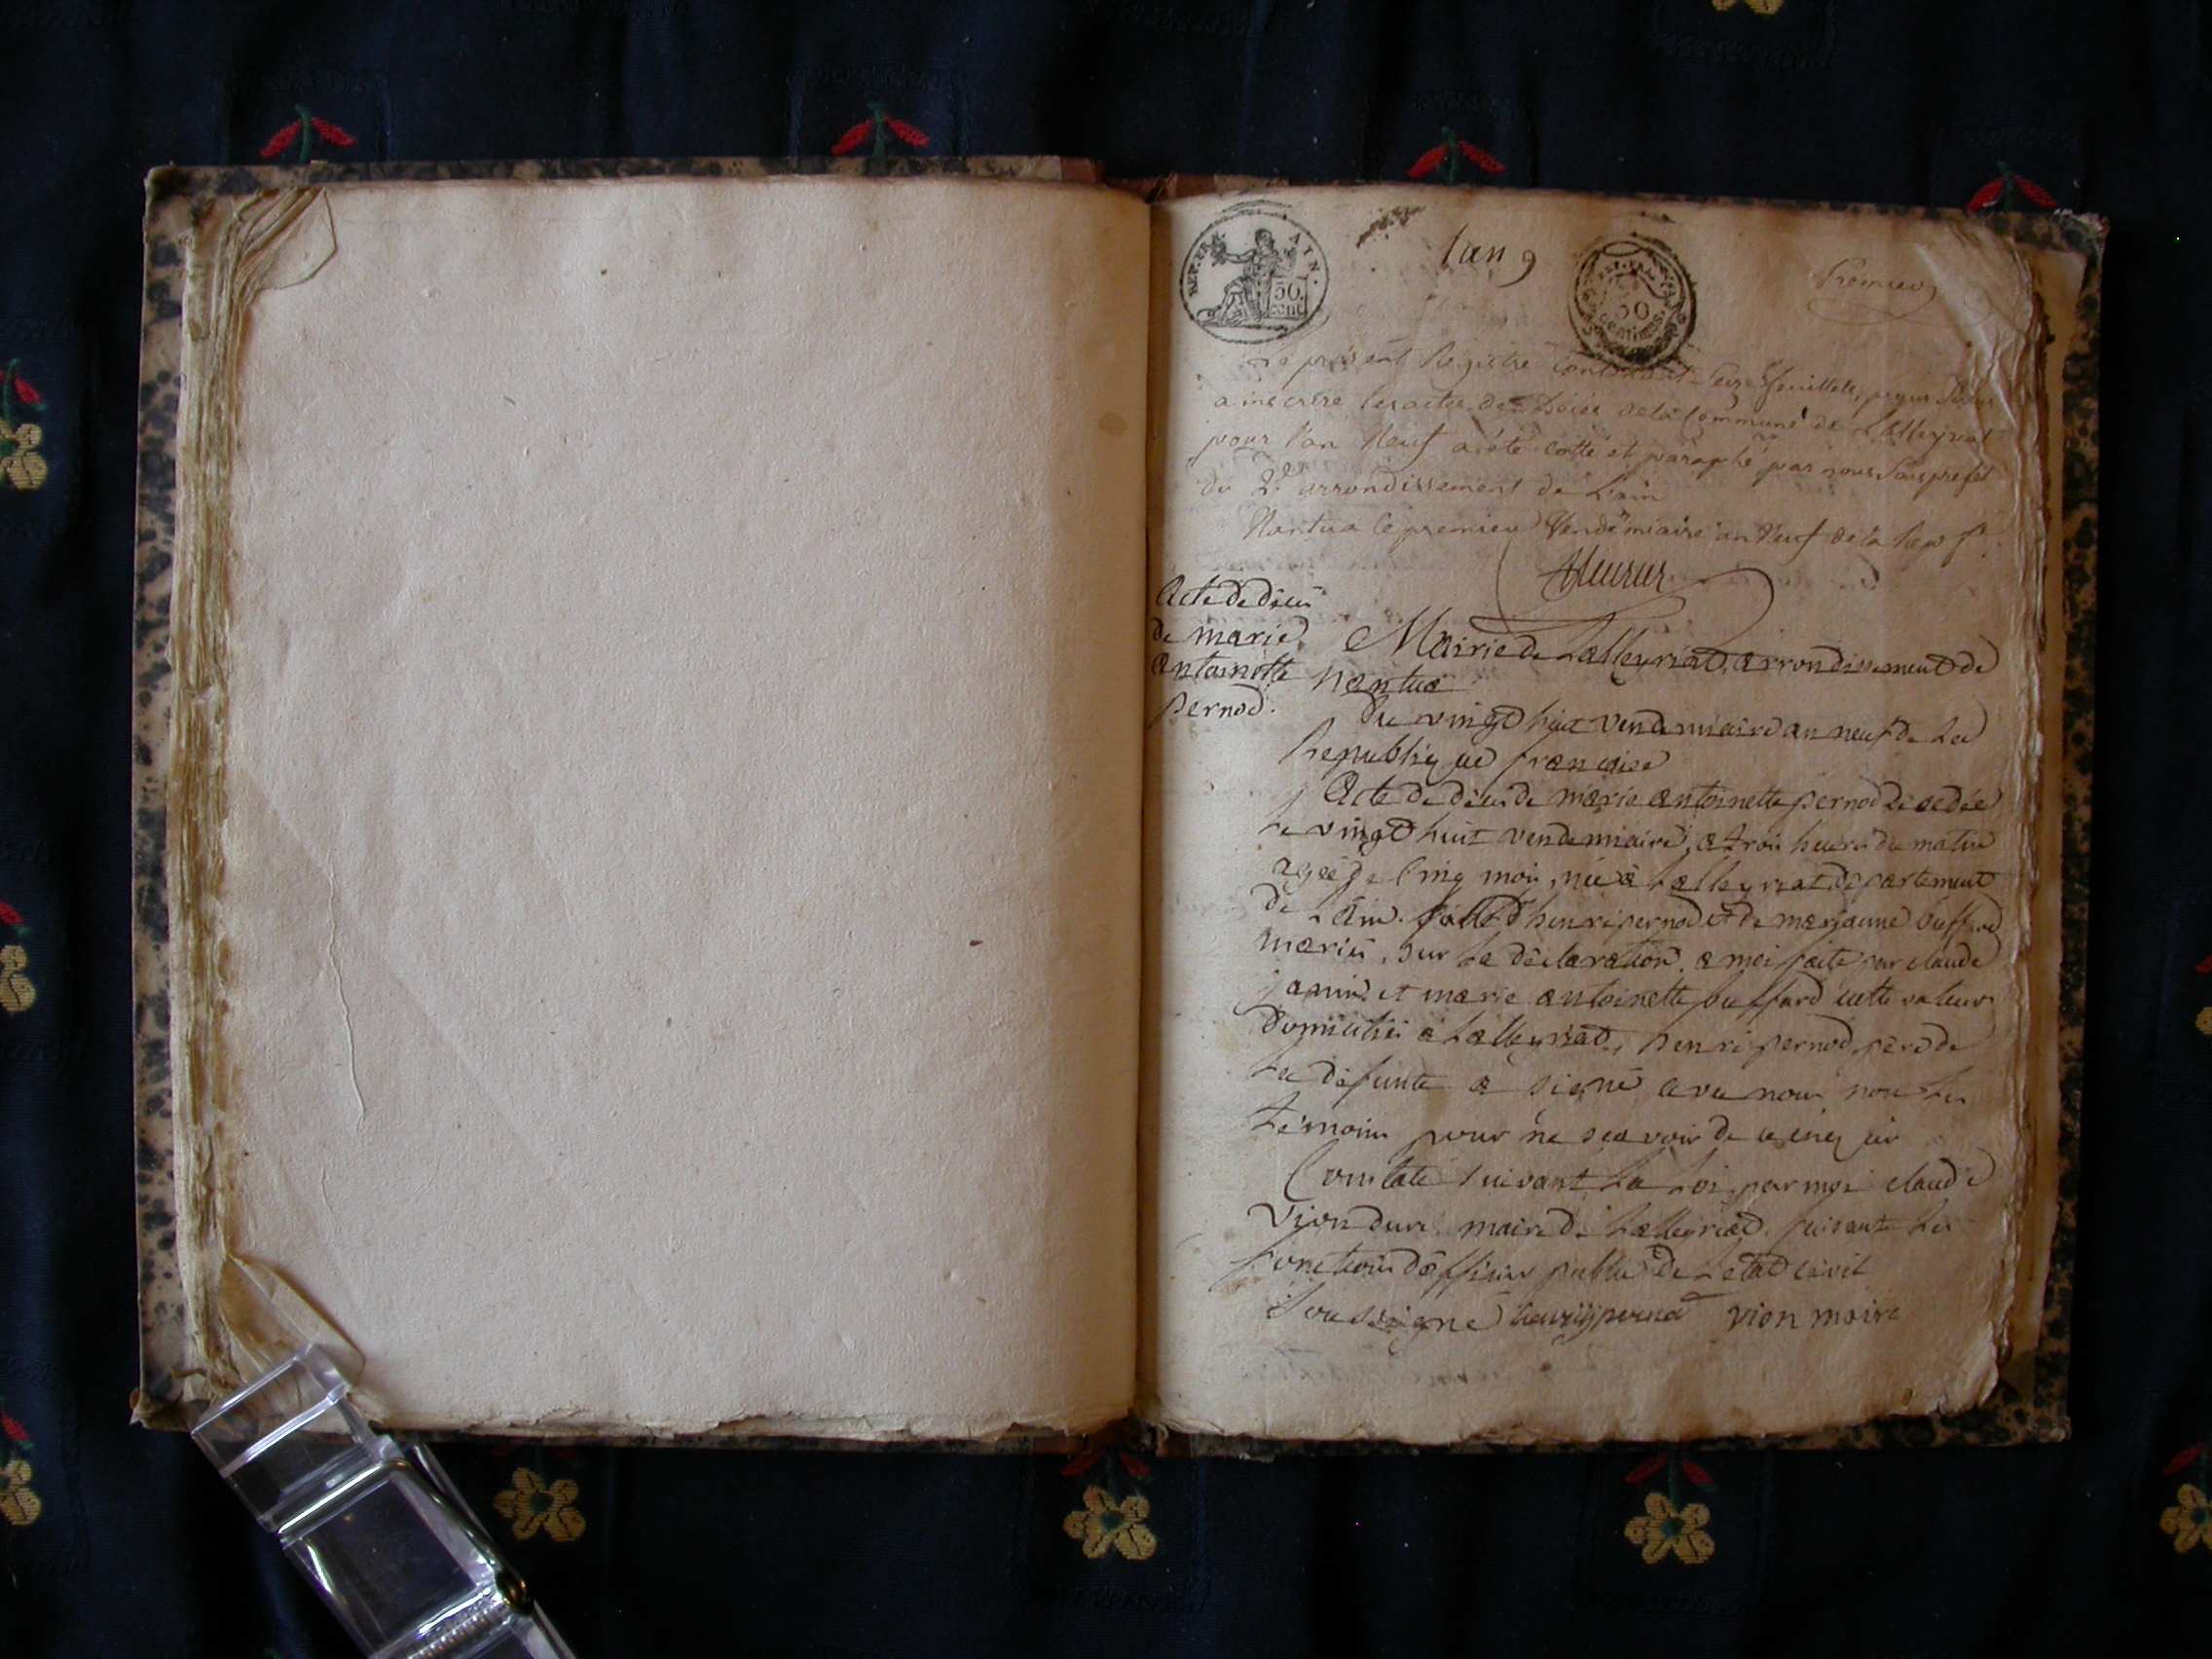 REP. FRA. AIN.
50.
cent
lan 9
REP. FRA.
50
centimes
Premier
Le présent Registre contenant Seize feuillets, pour Servir
a inscrire les actes de Décès de la Commune de Lalleyriat
pour l'an Neuf a été cotté et paraphé par nous Sousprefet
du 2e arrondissement de L'ain
Nantua le premier Vendémiaire an Neuf de la Rep. f.
Acte de déces
de marie
antoinette
pernod.
Mairie de Lalleyriat, arrondissement de
Nantua
du vingt huit vendemiaire an neuf de La
Republique francaise
Acte de déces de marie antoinette pernod decedée
Le vingt huit vendemiaire, a trois heures du matin
agée de Cinq mois, née à Lalleyriat departement
de Lain. fille d'henri pernod et de marianne buffard
mariés, sur La déclaration a moi faite par claude
janin et marie antoinette buffard cultivateurs
domiciliés a Lalleyriat, henri pernod père de
La défunte a signé avec nous non Les
témoins pour ne scavoir de ce enquis
Constaté suivant La Loi par moi claude
Vion maire de Lalleyriat faisant Les
fonctions d'officier public de Letat civil
Soussigné henry pernod vion maire